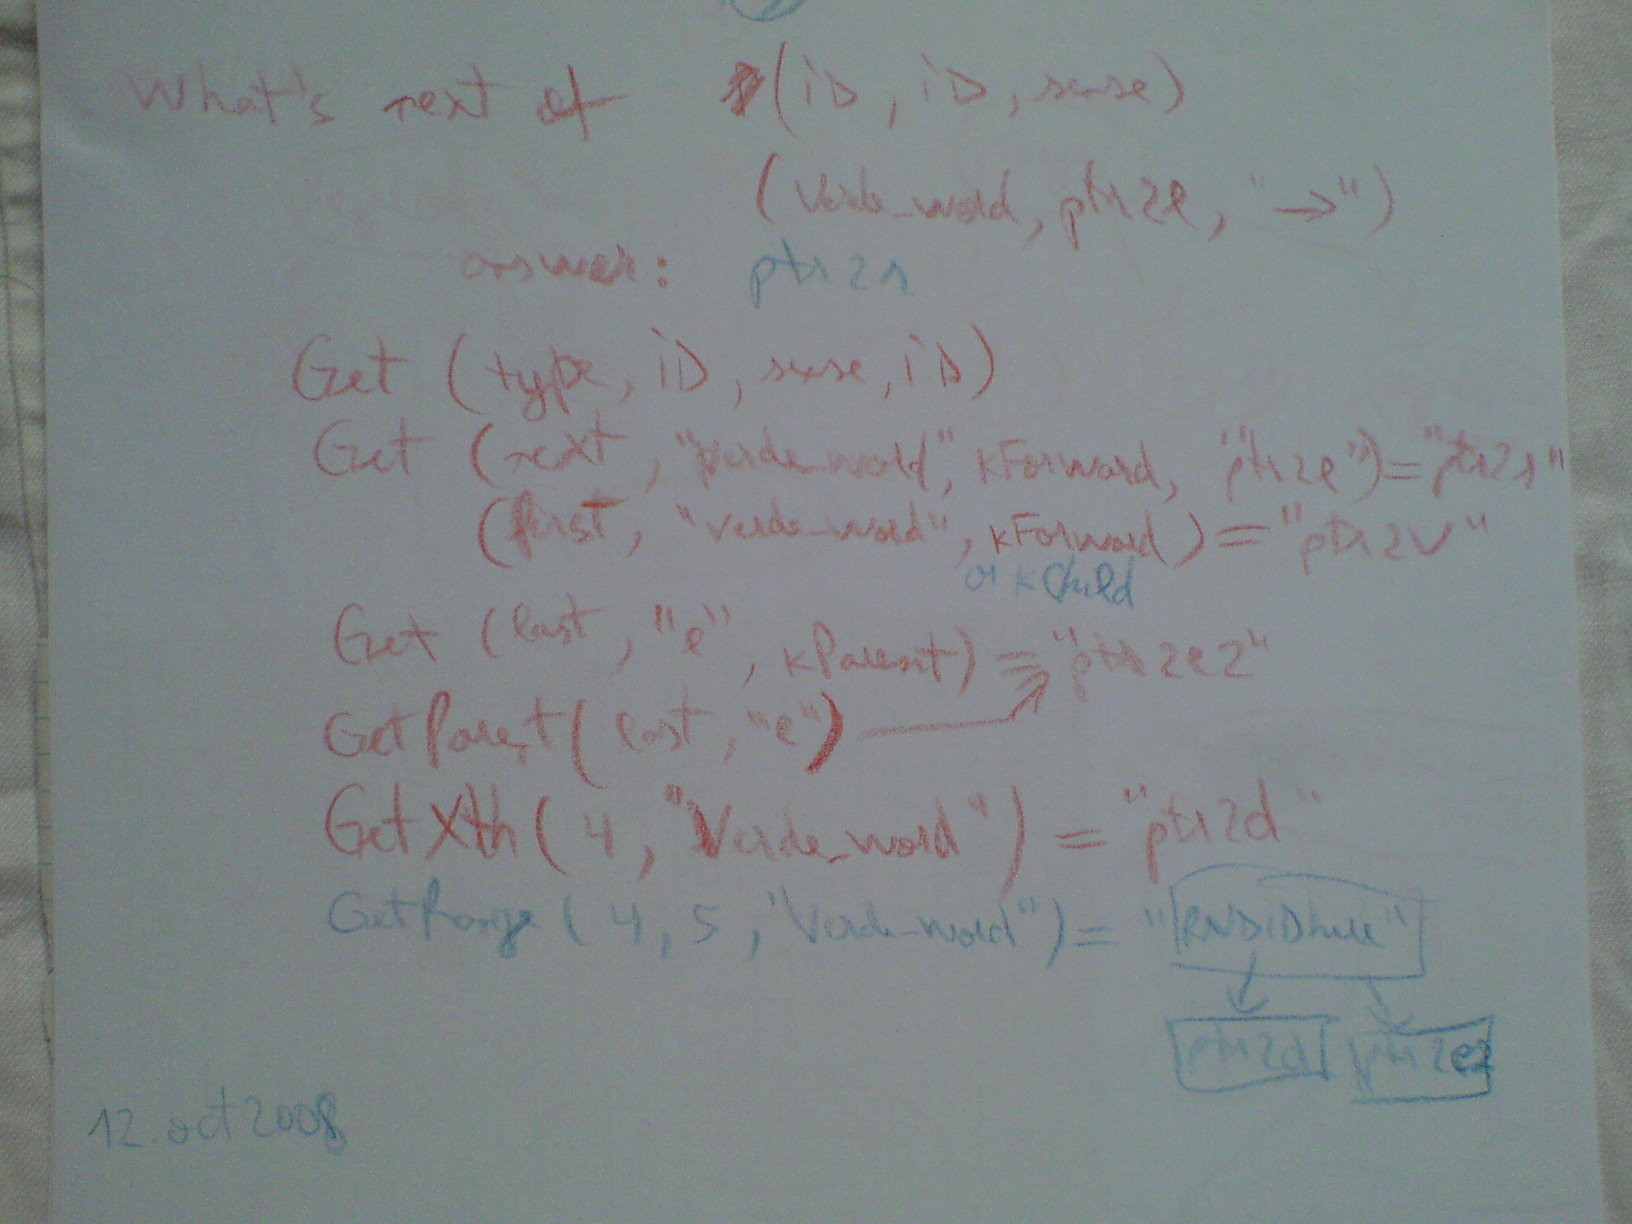 What's next of (iD, iD, sense)
(Verde_word, ptr2e, "→")
answer: ptr2r
Get (type, iD, sense, iD)
Get (next, "Verde_word", kForward, "ptr2e") = "ptr2r"
(first, "Verde_word", kForward) = "ptr2V"
or kChild
Get (last, "e", kParent) = "ptr2e2"
GetParent (last, "e")
GetXth (4, "Verde_word") = "ptr2d"
GetRange (4, 5, "Verde_word") = "
ptr2d ptr2e2
12. oct 2008